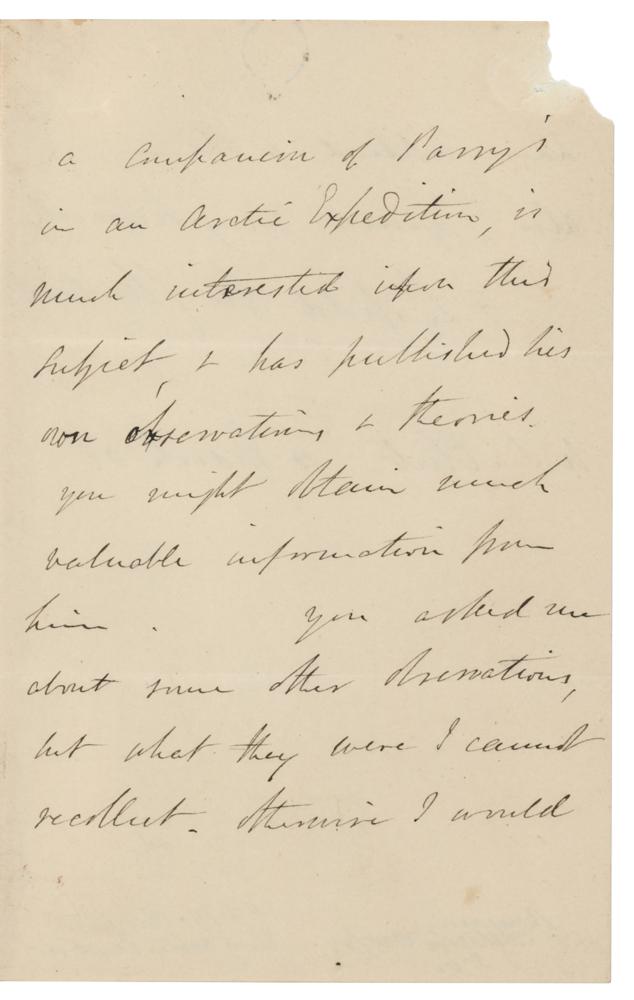 a companion of Parry's
in an Arctic Expedition, is
much interested upon this
subject, & has published his
own observations & theories.
you might obtain much
valuable information from
him. you asked me
about some other observations,
but what they were I cannot
recollect - otherwise I would